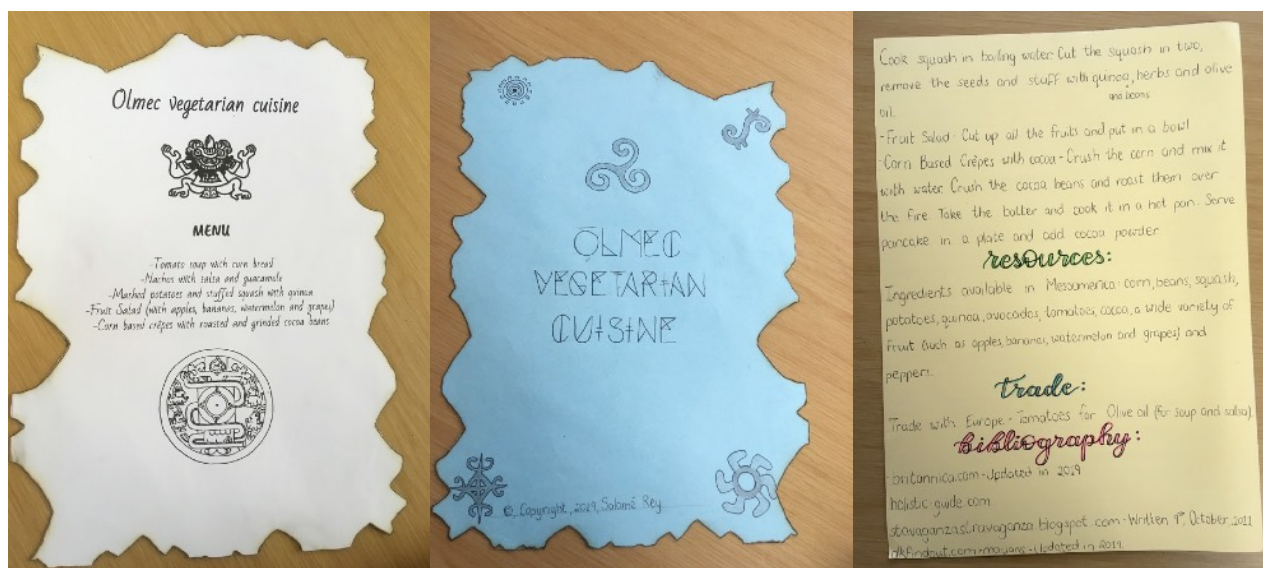 Olmec vegetarian cuisine
MENU
-Tomato soup with corn bread
-Nachos with salsa and guacamole
-Mashed potatoes and stuffed squash with quinoa
-Fruit Salad (with apples, bananas, watermelon and grapes)
-Corn based crêpes with roasted and grinded cocoa beans
OLMEC
VEGETARIAN
CUISINE
© Copyright, 2019, Salomé Rey
Cook squash in boiling water. Cut the squash in two,
remove the seeds and stuff with quinoa, herbs and olive
and beans
oil.
-Fruit Salad - Cut up all the fruits and put in a bowl
-Corn Based Crêpes with cocoa - Crush the corn and mix it
with water. Crush the cocoa beans and roast them over
the fire. Take the batter and cook it in a hot pan. Serve
pancake in a plate and add cocoa powder
resources:
Ingredients available in Mesoamerica: corn, beans, squash,
potatoes, quinoa, avocados, tomatoes, cocoa, a wide variety of
fruit (such as apples, bananas, watermelon and grapes) and
peppers.
trade:
Trade with Europe - Tomatoes for Olive oil (for soup and salsa)
bibliography:
-britannica.com - Updated in 2019
holistic-guide.com
stravaganzastravaganza.blogspot.com - Written 9th October, 2011
dkfindout.com-mayans - Updated in 2019.